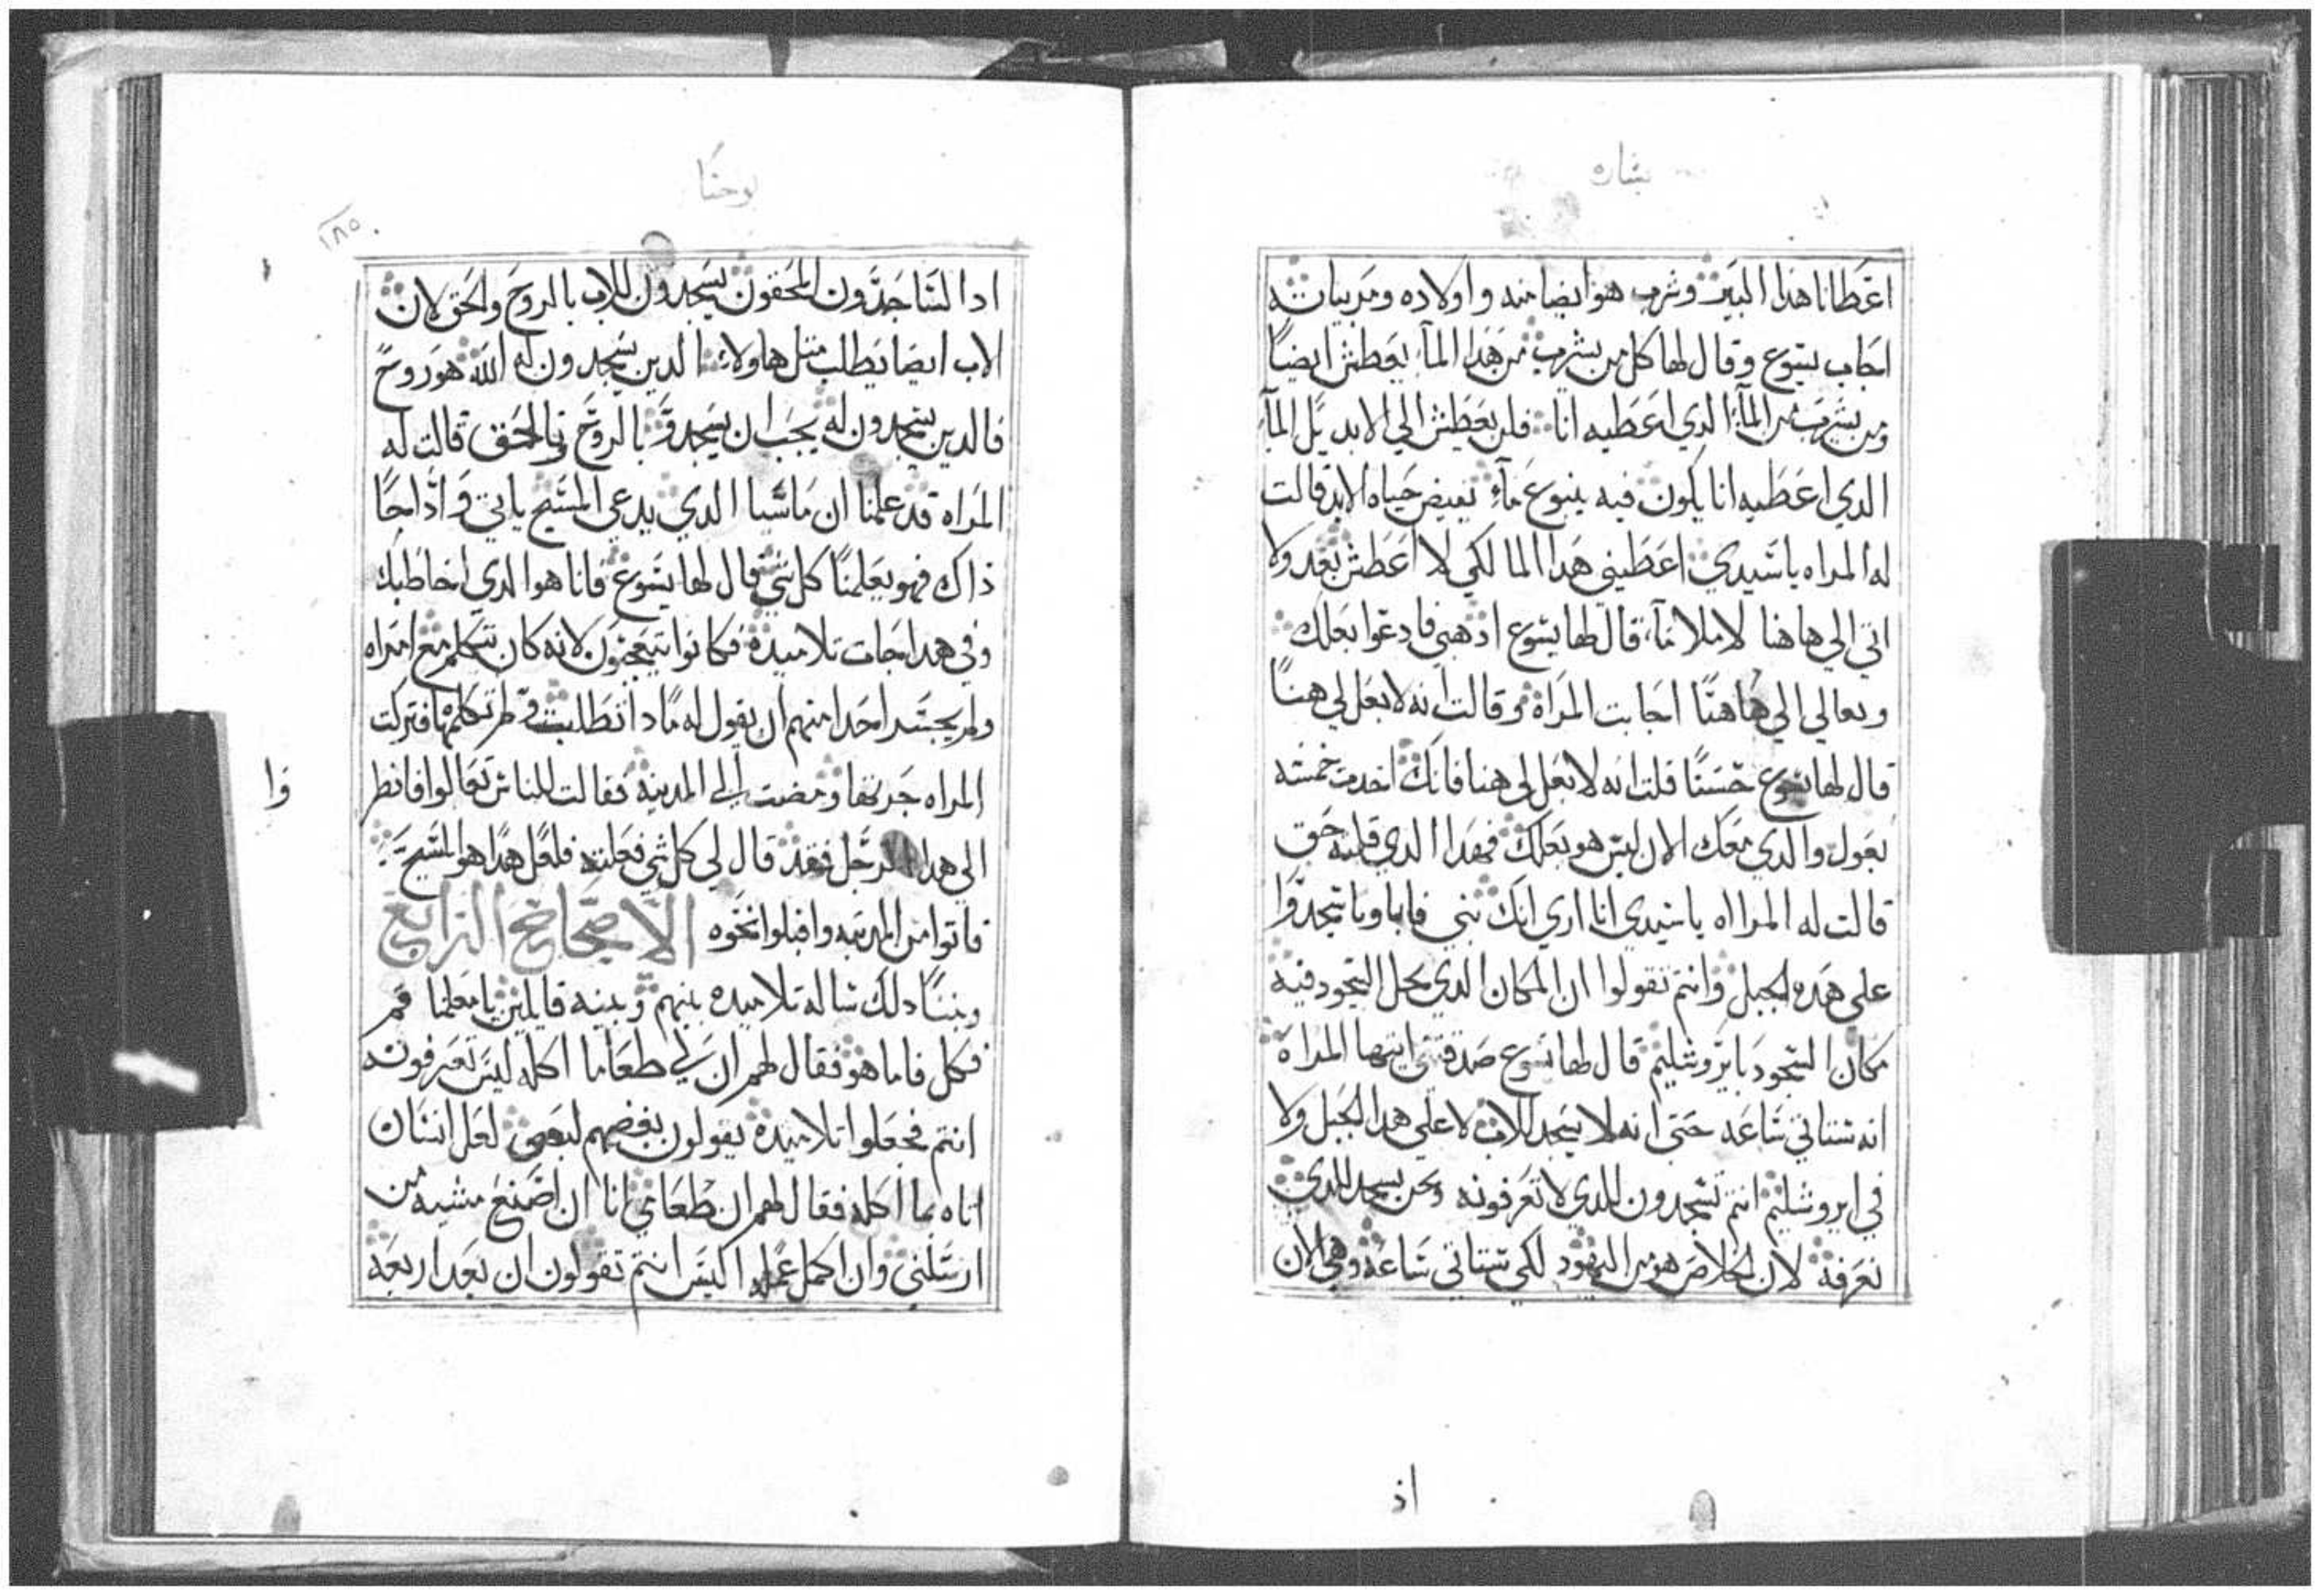 بشاره
اعطانا هذا البير وشرب هو ايضا منه واولاده ومربياته
اجاب يسوع وقال لها كل من يشرب من هدا المآء يعطش ايضاً
ومن يشرب من المآء الدي اعطيه انا فلن يعطش الي الابد بل المآ
الدي اعطيه انا يكون فيه ينبوع مآء يفيض حياه الابد قالت
له المراه ياسيدي اعطيني هدا الما لكي لا اعطش بعد ولا
اتي الي هاهنا لاملا مآء قال لها يسوع ادهبي فادعوا بعلك
وتعالي الي هاهنا اجابت المراه وقالت انه لا بعل لي هنا
قال لها يسوع حسناً قلت انه لا بعل لي هنا فانك اخدت خمسه
بعول والدي معك الان ليس هو بعلك فهدا الدي قلته حق
قالت له المرااه ياسيدي انا اري انك نبي فاباونا سجدوا
علي هده الجبل وانتم تقولوا ان المكان الدي يحل السجود فيه
مكان السجود بايروشليم قال لها يسوع صدقني ايتها المراه
انه ستاتي ساعه حتى انه لا يسجد للاب لا علي هدا الجبل ولا
في ايروشليم انتم تسجدون للدي لا تعرفونه ونحن نسجد للدي
نعرفه لان الخلاص هو من اليهود لكي ستاتي ساعه وهي الان
اذ
يوحنا
١٨٥
ادا الساجدون المحقون يسجدون للاب بالروح والحق لان
الاب ايضا يطلب متل هاولاء الدين يسجدون له الله هو روح
فالدين يسجدون له يجب ان يسجدو بالروح وبالحق قالت له
المراه قد علمنا ان ماسيا الدي يدعي المسيح ياتي وادا جا
ذاك فهو يعلمنا كل شي قال لها يسوع فانا هو الدي اخاطبك
وفي هدا جات تلاميده فكانوا يتعجبون لانه كان يتكلم مع امراه
ولم يجسد احدا منهم ان يقول له مادا تطلب ولم تكلمها فتركت
المراه جرتها ومضت الي المدينه فقالت للناس تعالوا فانظر
وا
الي هدا الرجل فقد قال لي كل شي فعلته فلعل هدا هو المسيح
فاتوا من المدينه واقبلوا نحوه الاصحاح الرابع
وبينا دلك ساله تلاميده بينهم وبينه قايلين يامعلمنا قم
فكل فاما هو فقال لهم ان لي طعاما اكله ليس تعرفونه
انتم فجعلوا تلاميده يقولون بعضهم لبعض لعل انسان
اتاه بما اكله فقال لهم ان طعامي انا ان اصنع مشيه من
ارسلني وان اكمل عمله اليس انتم تقولون ان بعد اربعه